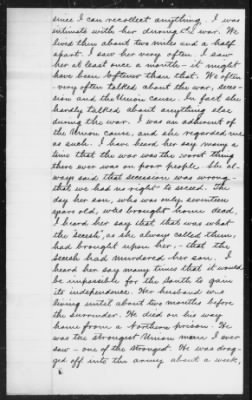 since I can recollect anything. I was
intimate with her during the war. We
lived then about two miles and a half
apart. I saw her very often. I saw
her at least once a month - it might
have been oftener than that. We often
- very often talked about the war, seces-
sion and the Union cause. In fact she
hardly talked about anything else
during the war. I was an adherent of
the Union cause, and she regarded me
as such. I have heard her say many a
time that the war was the worst thing
there ever was on poor people. She al-
ways said that secession was wrong -
that we had no right to secede. The
day her son, who was only seventeen
years old, was brought home dead,
I heard her say that that was what
the "secesh", as she always called them,
had brought upon her, - that the
secesh had murdered her son. I
heard her say many times that it would
be impossible for the south to gain
its independence. Her husband was
living until about two months before
the surrender. He died on his way
home from a Northern prison. He
was the strongest Union man I ever
saw - one of the strongest. He was drag-
ged off into the army about a week,